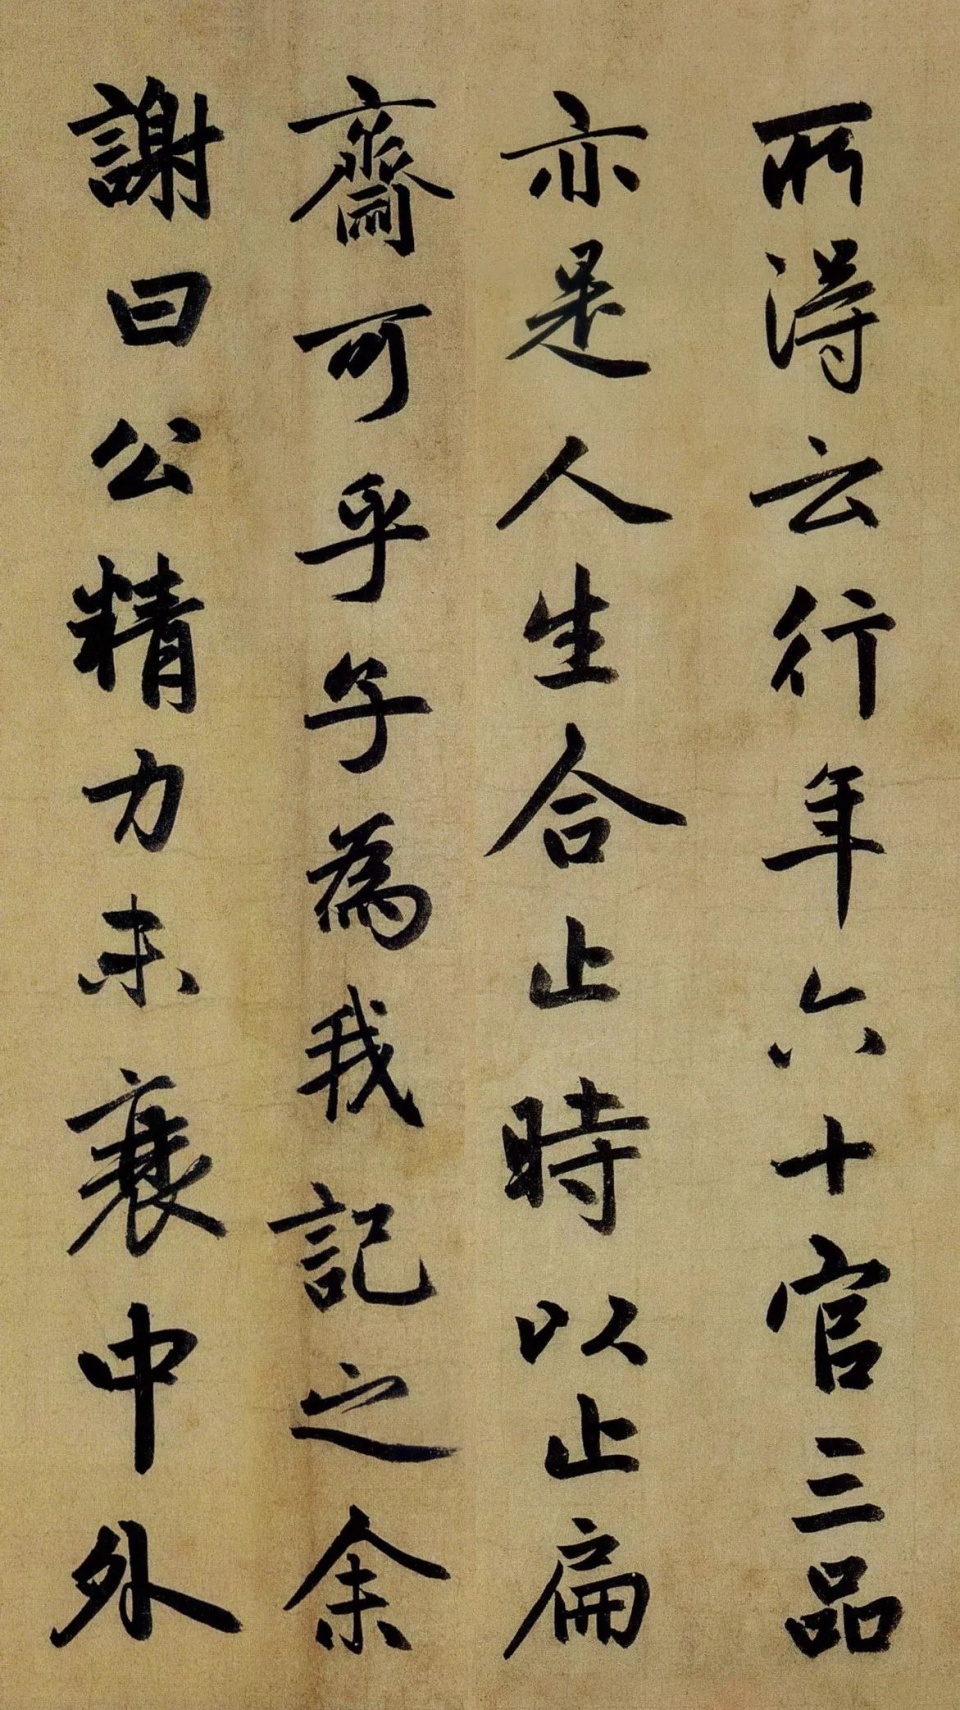 所得云行年六十官三品
亦是人生合止時以止扁
齋可乎子為我記之余
謝曰公精力未衰中外